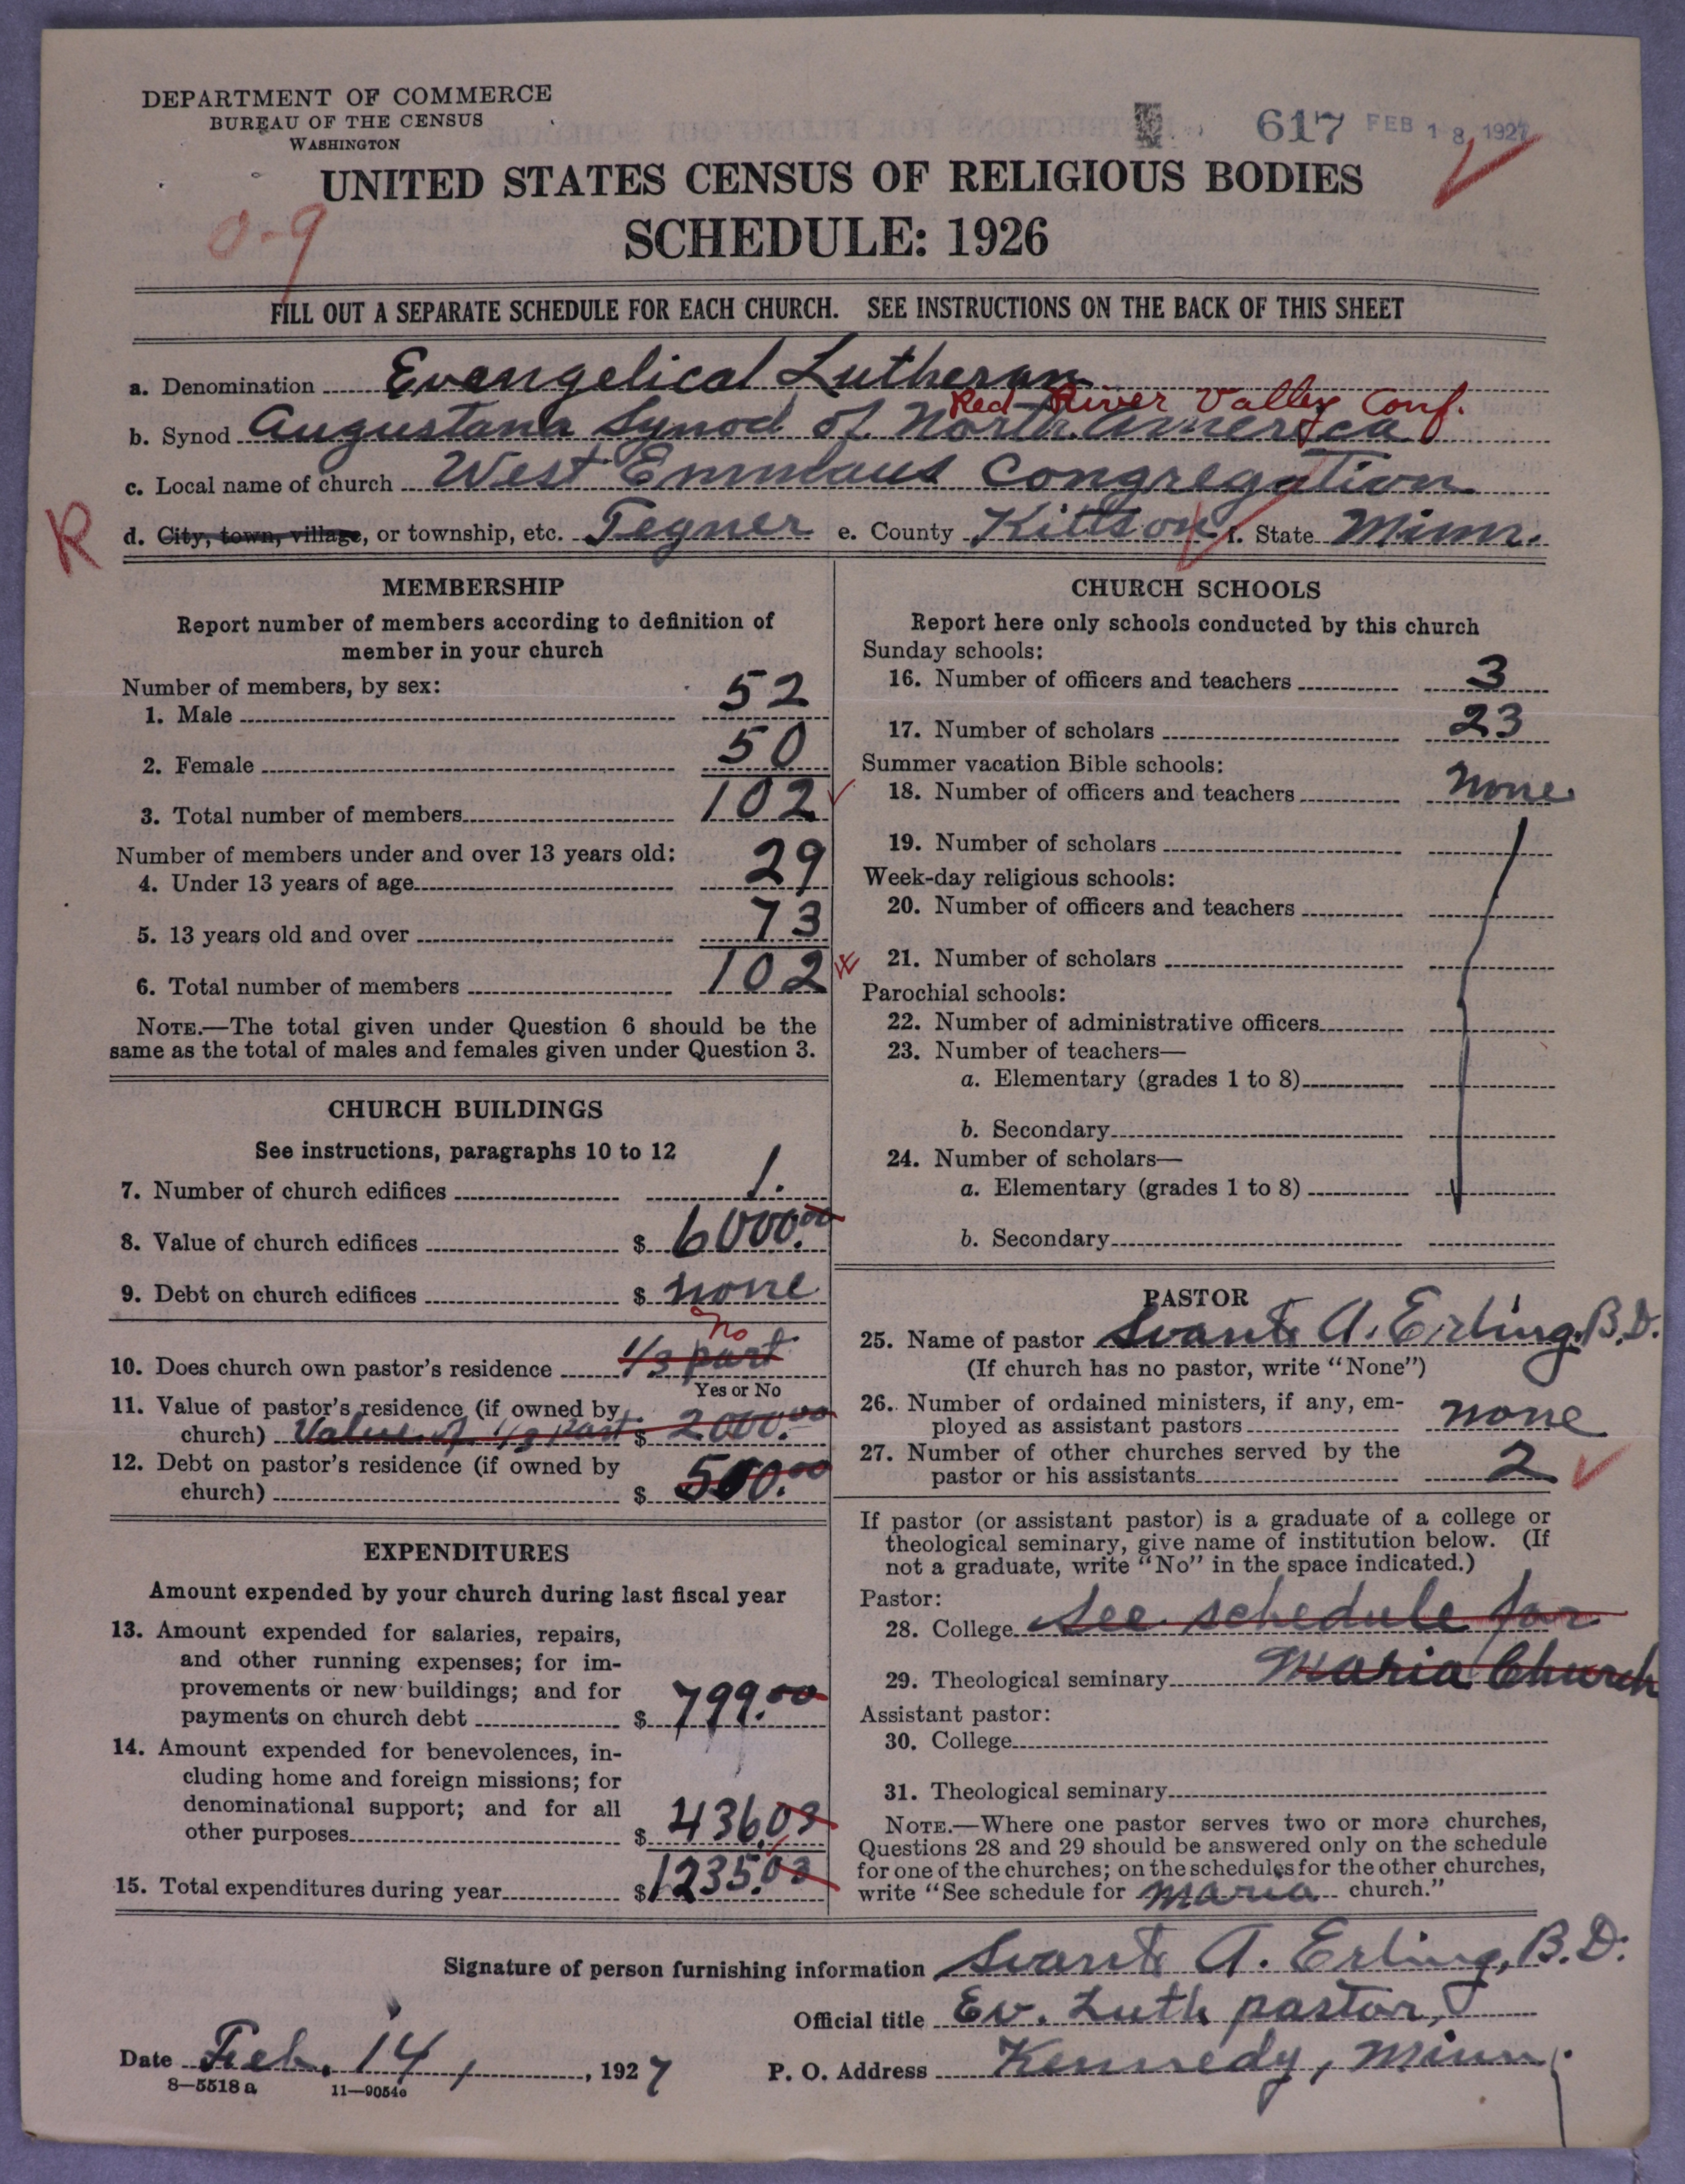 DEPARTMENT OF COMMERCE
BUREAU OF THE CENSUS
WASHINGTON
617 FEB 18 1927
UNITED STATES CENSUS OF RELIGIOUS BODIES
0-9
SCHEDULE: 1926
FILL OUT A SEPARATE SCHEDULE FOR EACH CHURCH. SEE INSTRUCTIONS ON THE BACK OF THIS SHEET
a. Denomination Evangelical Lutheran
Red River Valley Conf.
b. Synod Augustana Synod of North America
c. Local name of church West Emmaus Congregation
R
d. City, town, village, or township, etc. Tegner e. County Kittson f. State Minn.
MEMBERSHIP
Report number of members according to definition of
member in your church
Number of members, by sex:
1. Male 52
2. Female 50
3. Total number of members 102
Number of members under and over 13 years old:
4. Under 13 years of age 29
5. 13 years old and over 73
6. Total number of members 102
NOTE.—The total given under Question 6 should be the
same as the total of males and females given under Question 3.
CHURCH BUILDINGS
See instructions, paragraphs 10 to 12
7. Number of church edifices 1.
8. Value of church edifices $ 6000.00
9. Debt on church edifices $ none
No
10. Does church own pastor's residence 1/3 part
Yes or No
11. Value of pastor's residence (if owned by
church) Value of 1/3 part $ 2000.00
12. Debt on pastor's residence (if owned by
church) $ 500.00
EXPENDITURES
Amount expended by your church during last fiscal year
13. Amount expended for salaries, repairs,
and other running expenses; for im-
provements or new buildings; and for
payments on church debt $ 799.00
14. Amount expended for benevolences, in-
cluding home and foreign missions; for
denominational support; and for all
other purposes $ 436.03
15. Total expenditures during year $ 1235.03
CHURCH SCHOOLS
Report here only schools conducted by this church
Sunday schools:
16. Number of officers and teachers 3
17. Number of scholars 23
Summer vacation Bible schools:
18. Number of officers and teachers none
19. Number of scholars
Week-day religious schools:
20. Number of officers and teachers
21. Number of scholars
Parochial schools:
22. Number of administrative officers
23. Number of teachers—
a. Elementary (grades 1 to 8)
b. Secondary
24. Number of scholars—
a. Elementary (grades 1 to 8)
b. Secondary
PASTOR
25. Name of pastor Svante A. Erling, B.D.
(If church has no pastor, write "None")
26. Number of ordained ministers, if any, em-
ployed as assistant pastors none
27. Number of other churches served by the
pastor or his assistants 2
If pastor (or assistant pastor) is a graduate of a college or
theological seminary, give name of institution below. (If
not a graduate, write "No" in the space indicated.)
Pastor:
28. College See schedule for
29. Theological seminary Maria Church
Assistant pastor:
30. College
31. Theological seminary
NOTE.—Where one pastor serves two or more churches,
Questions 28 and 29 should be answered only on the schedule
for one of the churches; on the schedules for the other churches,
write "See schedule for Maria church."
Signature of person furnishing information Svante A. Erling, B.D.
Official title Ev. Luth pastor,
Date Feb. 14, 1927 P. O. Address Kennedy, Minn.
8—5518 a 11—9054c